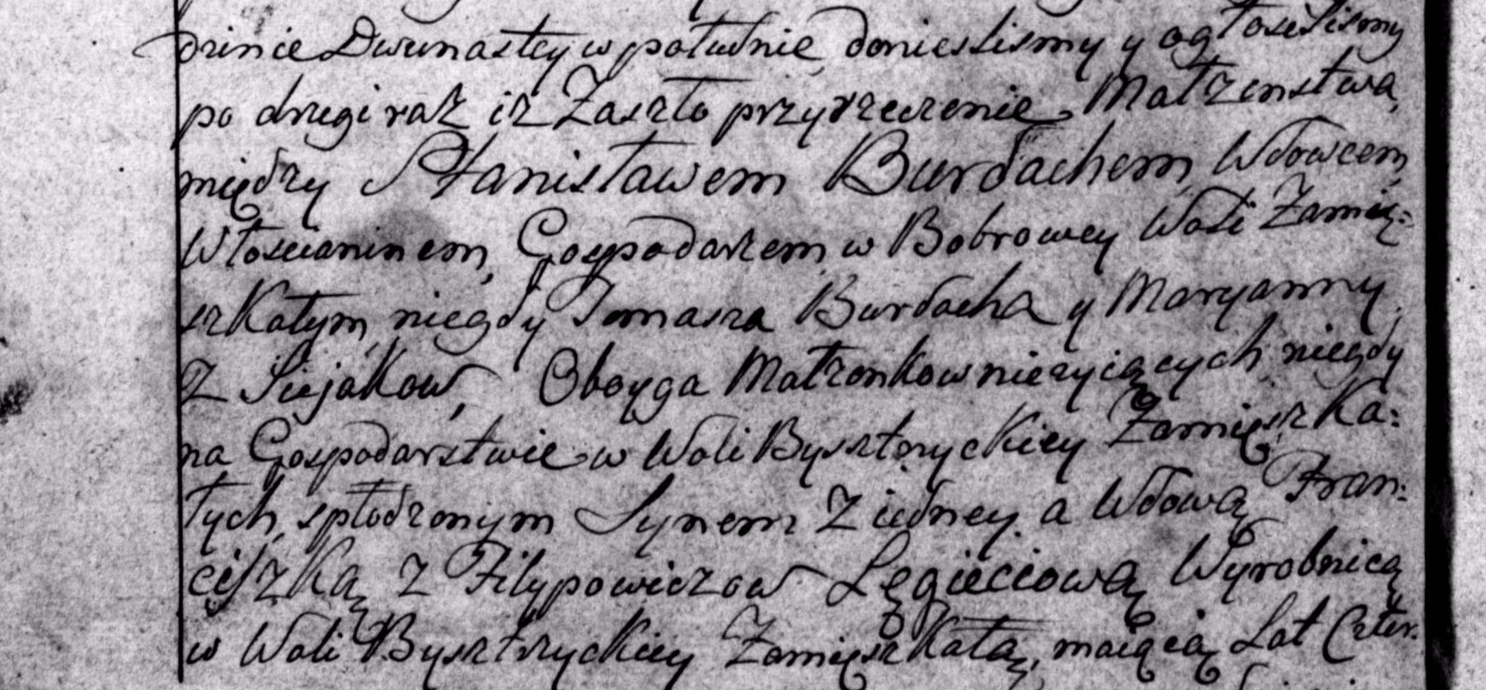 dzinie Dwunastey w południe donieslismy y ogłosiłismy
po drugi raz iz Zaszło przyrzeczenie Małzenstwa,
między Stanisławem Burdachem, Wdowcem,
Włoscianinem, Gospodarzem w Bobrowey Woli Zamię:
szkałym, niegdy Tomasza Burdacha y Maryanny
z Siejakow, Oboyga Małzonkow niezyiących niegdy
na Gospodarstwie w Woli Bysztrzyckiey Zamięszka:
łych, spłodzonym Synem z iedney a Wdową Fran:
ciszką z Filypowiczow Lęgieciową Wyrobnicą
w Woli Bysztrzyckiey Zamięszkałą, maiącą Lat Czter: